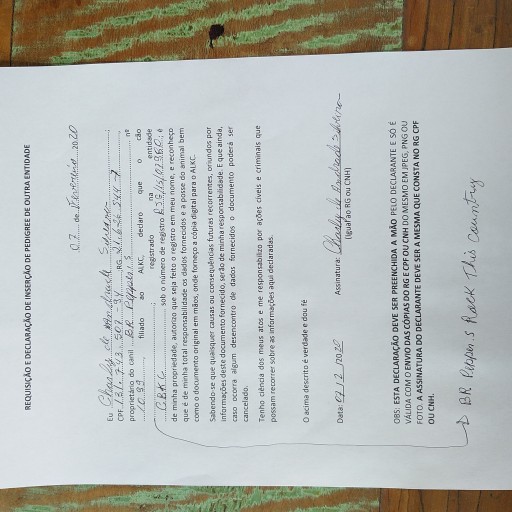 REQUISIÇÃO E DECLARAÇÃO DE INSERÇÃO DE PEDIGREE DE OUTRA ENTIDADE
07 de Fevereiro, 2020
Eu Charles de Andrade
CPF RG
proprietário do canil BR Pepper's nº
filiado ao ALKC, declaro que o cão
registrado na entidade
CBKC sob o número de registro e
de minha propriedade, autorizo que seja feito o registro em meu nome, e reconheço
que é de minha total responsabilidade os dados fornecidos e a posse do animal bem
como o documento original em mãos, onde forneço a cópia digital para o ALKC.
Sabendo-se que quaisquer causas ou consequências futuras recorrentes, oriundos por
informações deste documento fornecido, serão de minha responsabilidade. E que ainda,
caso ocorra algum desencontro de dados fornecidos o documento poderá ser
cancelado.
Tenho ciência dos meus atos e me responsabilizo por ações cíveis e criminais que
possam recorrer sobre as informações aqui declaradas.
O acima descrito é verdade e dou fé
Data: 07/2/2020 Assinatura: Charles de Andrade
(igual ao RG ou CNH)
OBS: ESTA DECLARAÇÃO DEVE SER PREENCHIDA A MÃO PELO DECLARANTE E SÓ É
VÁLIDA COM O ENVIO DAS CÓPIAS DO RG E CPF OU CNH DO MESMO EM JPEG, PNG OU
FOTO. A ASSINATURA DO DECLARANTE DEVE SER A MESMA QUE CONSTA NO RG CPF
OU CNH.
BR Pepper's Rock This Country